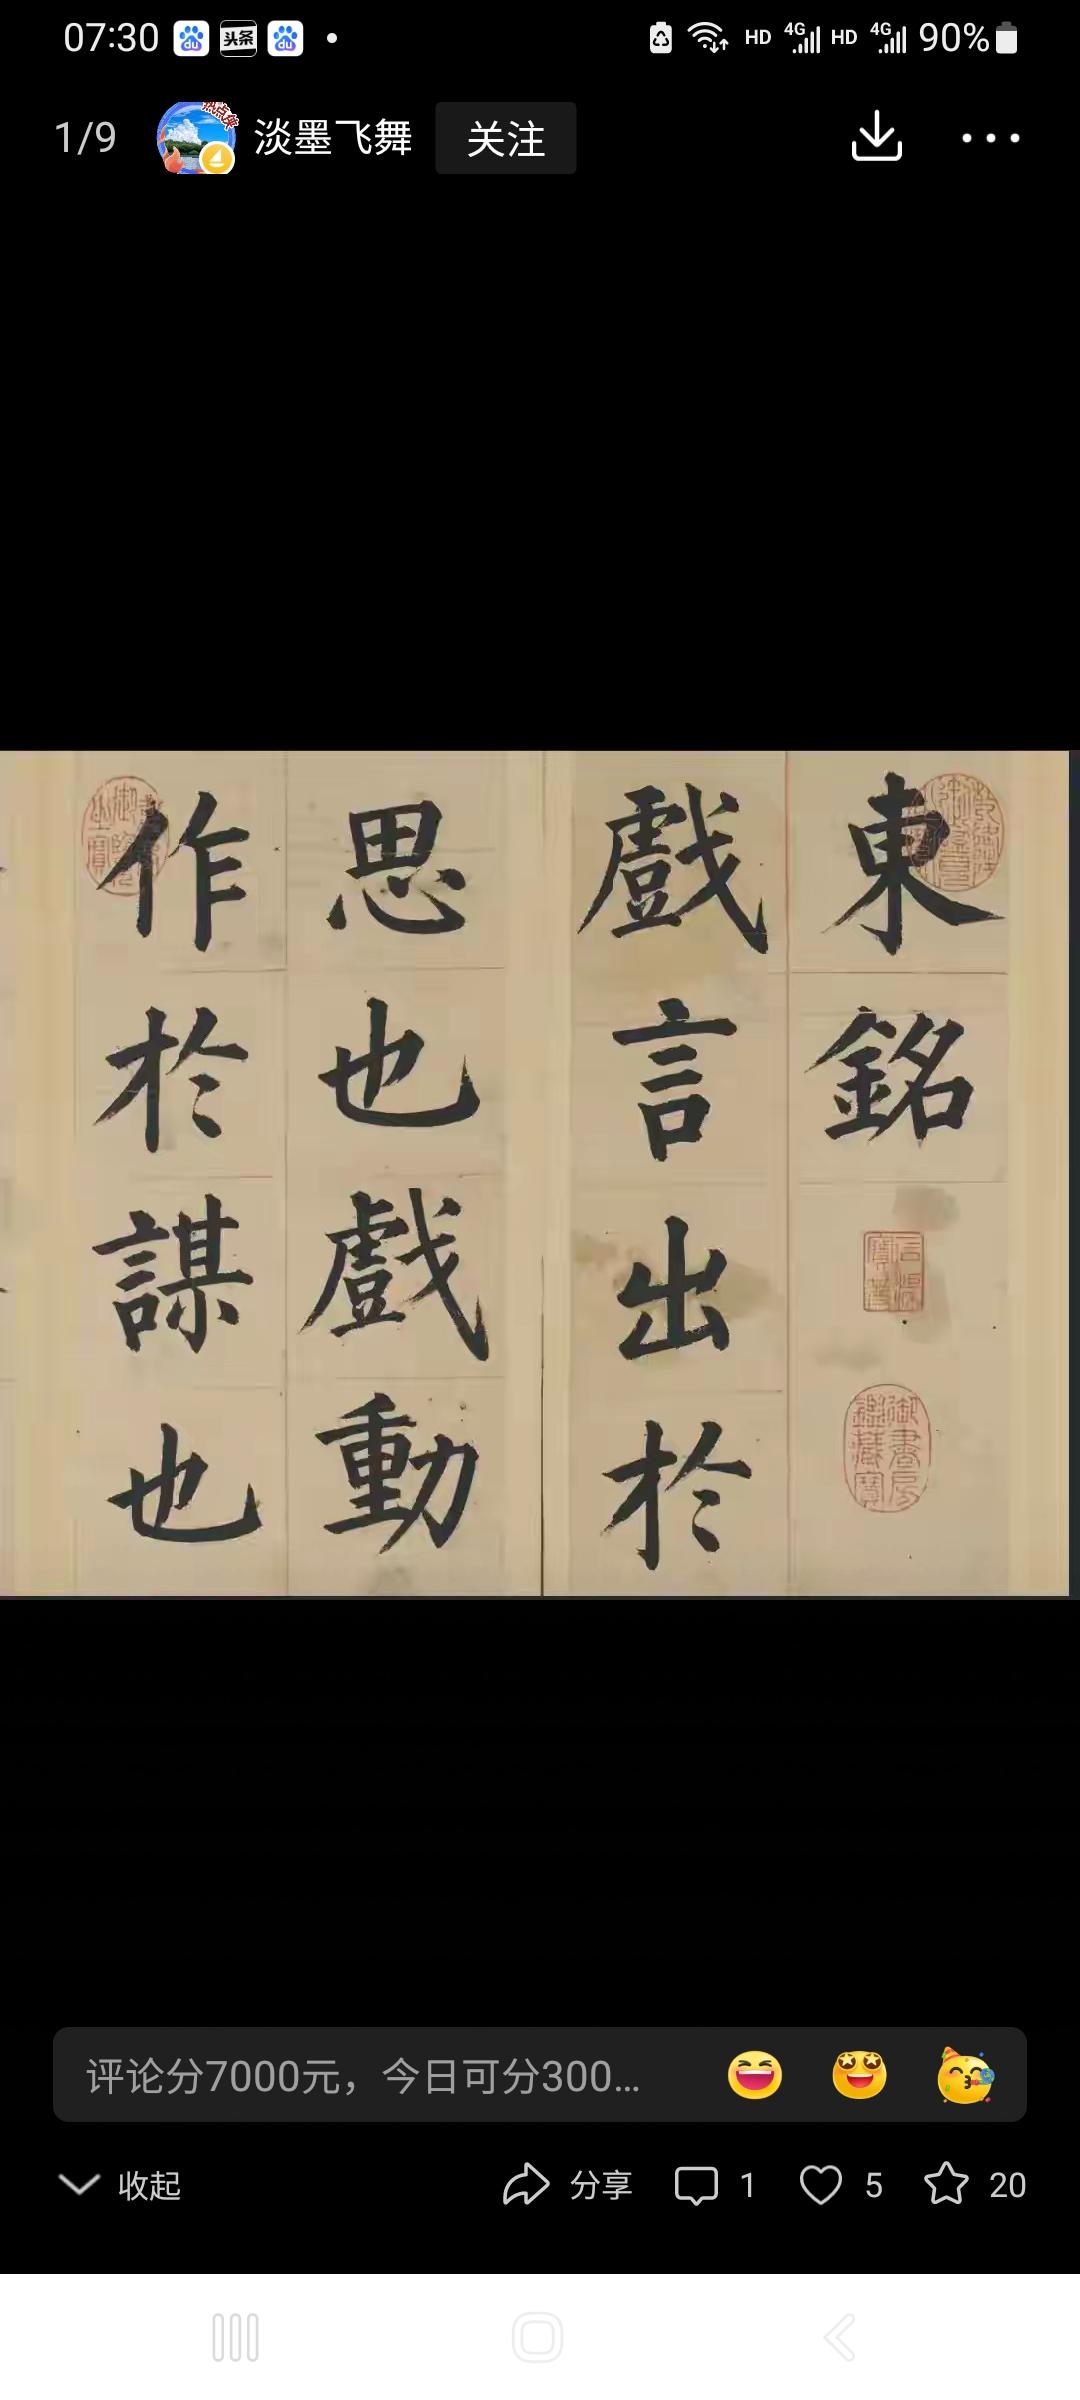 07:30 头条 HD 4G HD 4G 90%
1/9 淡墨飞舞 关注
東銘
戲言出於
思也戲動
作於謀也
御書房鑑藏寶
评论分7000元，今日可分300...
收起 分享 1 5 20